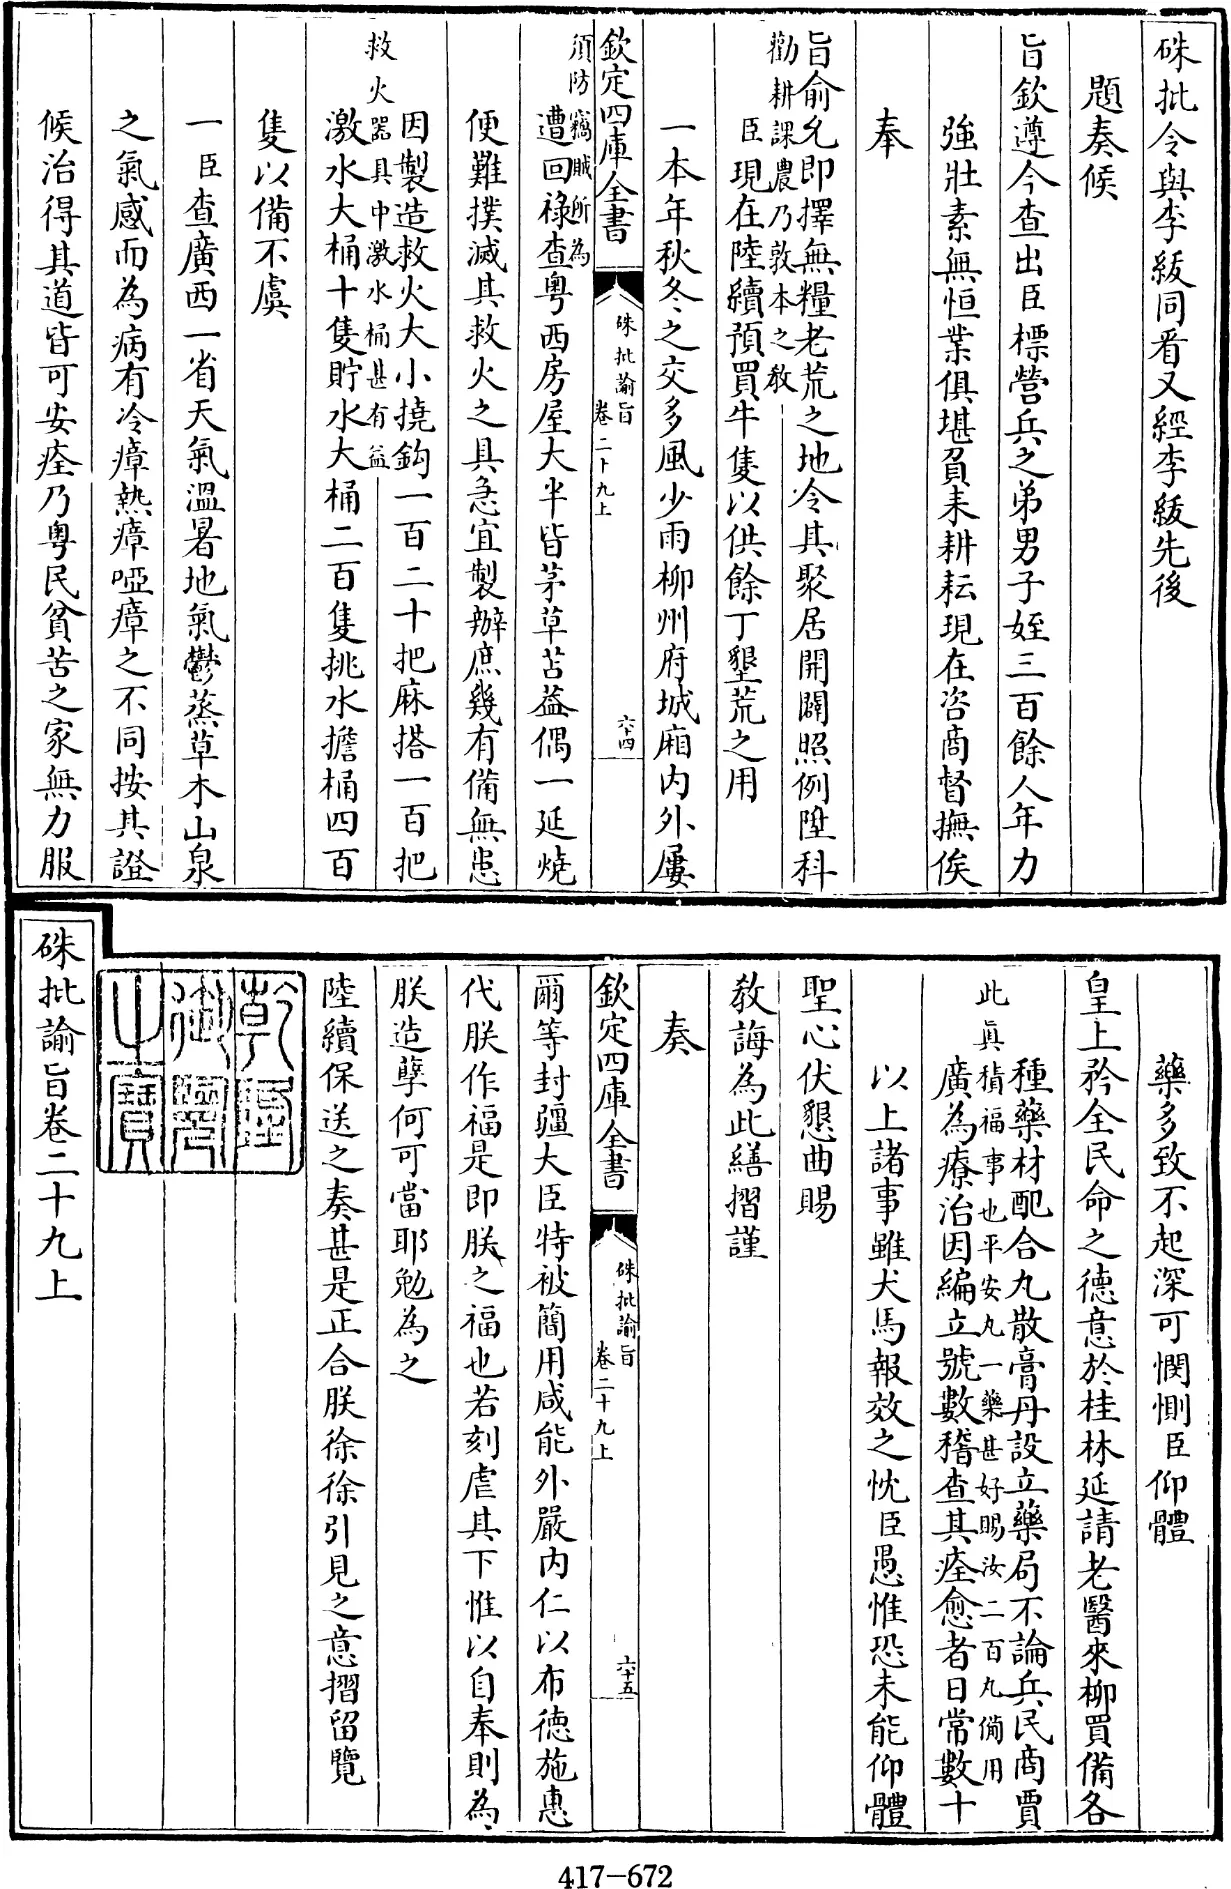 硃批令與李紱同看又經李紱先後
題奏候
旨欽遵今查出臣標營兵之弟男子姪三百餘人年力
強壯素無恒業俱堪負耒耕耘現在咨商督撫俟
奉
旨俞允即擇無糧老荒之地令其聚居開闢照例陞科
勸耕課農乃敦本之教
臣現在陸續預買牛隻以供餘丁墾荒之用
一本年秋冬之交多風少雨柳州府城廂内外屢
欽定四庫全書
硃批諭旨
卷二十九上
六十四
須防竊賊所為
遭回祿查粵西房屋大半皆茅草苫葢偶一延燒
便難撲滅其救火之具急宜製辦庶幾有備無患
因製造救火大小撓鈎一百二十把麻搭一百把
救火器具中激水桶甚有益
激水大桶十隻貯水大桶二百隻挑水擔桶四百
隻以備不虞
一臣查廣西一省天氣溫暑地氣鬱蒸草木山泉
之氣感而為病有冷瘴熱瘴啞瘴之不同按其證
候治得其道皆可安痊乃粵民貧苦之家無力服
藥多致不起深可憫惻臣仰體
皇上矜全民命之德意於桂林延請老醫來柳買備各
種藥材配合丸散膏丹設立藥局不論兵民商賈
此真積福事也平安丸一藥甚好賜汝二百丸備用
廣為療治因編立號數稽查其痊愈者日常數十
以上諸事雖犬馬報效之忱臣愚惟恐未能仰體
聖心伏懇曲賜
教誨為此繕摺謹
奏
欽定四庫全書
硃批諭旨
卷二十九上
六十五
爾等封疆大臣特被簡用咸能外嚴内仁以布德施惠
代朕作福是即朕之福也若刻虐其下惟以自奉則為
朕造孽何可當耶勉為之
陸續保送之奏甚是正合朕徐徐引見之意摺留覽
乾隆
御覽
之寶
硃批諭旨卷二十九上
417-672